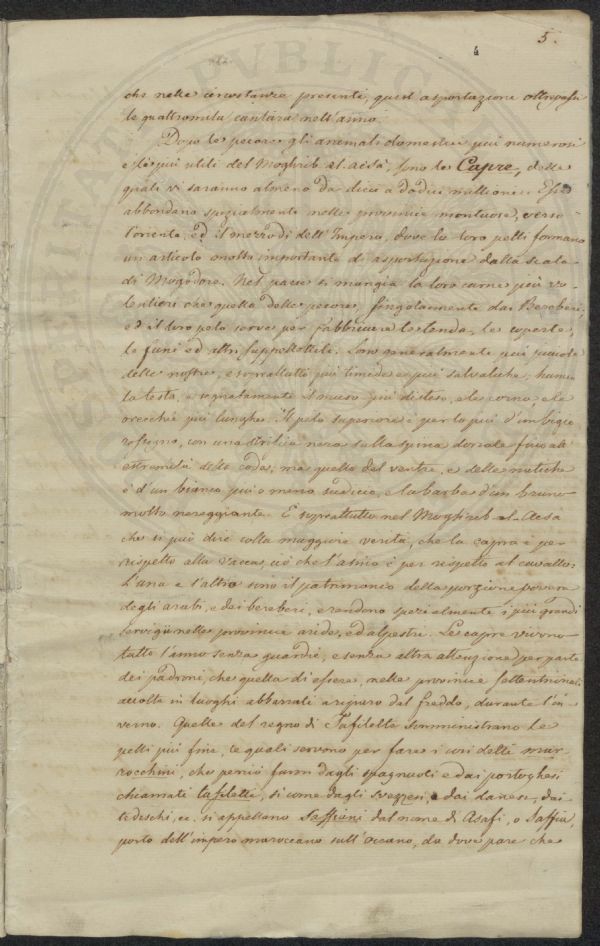 5.
4
che nelle circostanze presenti, quest'asportazione oltrepassa
le quattromila cantara nell'anno.
Dopo le pecore gli animali domestici più numerosi
e più utili del Moghrib-el-acsà, sono le Capre, delle
quali vi saranno almeno da dieci a dodici millioni. Esse
abbondano spezialmente nelle provincie montuose, verso
l'oriente, ed il mezzodì dell'Impero, dove le loro pelli formano
un articolo molto importante di asportazione dalla scala
di Mogodore. Nel paese si mangia la loro carne più vo-
lentieri che quella delle pecore, singolarmente dai Bereberi,
ed il loro pelo serve per fabbricare le tende, le coperte,
le funi ed altri suppellettili. Sono generalmente più piccole
delle nostre, e soprattutto più timide e più salvatiche; hanno
la testa, e segnatamente il muso più disteso, e le corna, e le
orecchie più lunghe. Il pelo superiore è per lo più d'un bigio
rossigno, con una striscia nera sulla spina dorsale fino all'
estremità della coda; ma quello del ventre, e delle natiche
è d'un bianco più o meno sudicio, e la barba d'un bruno
molto nereggiante. È soprattutto nel Moghrib-el-Acsà
che si può dire colla maggiore verità, che la capra è per
rispetto alla vacca, ciò che l'asino è per rispetto al cavallo.
L'una e l'altro sono il patrimonio della porzione povera
degli arabi, e dei bereberi, e rendono spezialmente i più grandi
servigii nelle provincie aride, ed alpestri. Le capre vivono
tutto l'anno senza guardie, e senza altra attenzione per parte
dei padroni, che quella di essere, nelle provincie settentrionali,
accolte in luoghi abbarrati a riparo dal freddo, durante l'in-
verno. Quelle del regno di Tafilette somministrano le
pelli più fine, le quali servono per fare i cuoi detti mar-
rocchini, che perciò furon dagli spagnuoli e dai portoghesi
chiamati tafiletti, sì come dagli svezzesi, e dai danesi, dai
tedeschi, ec. si appellano Saffiani dal nome di Asafi, o Saffia,
porto dell'impero maroccano sull'oceano, da dove pare che